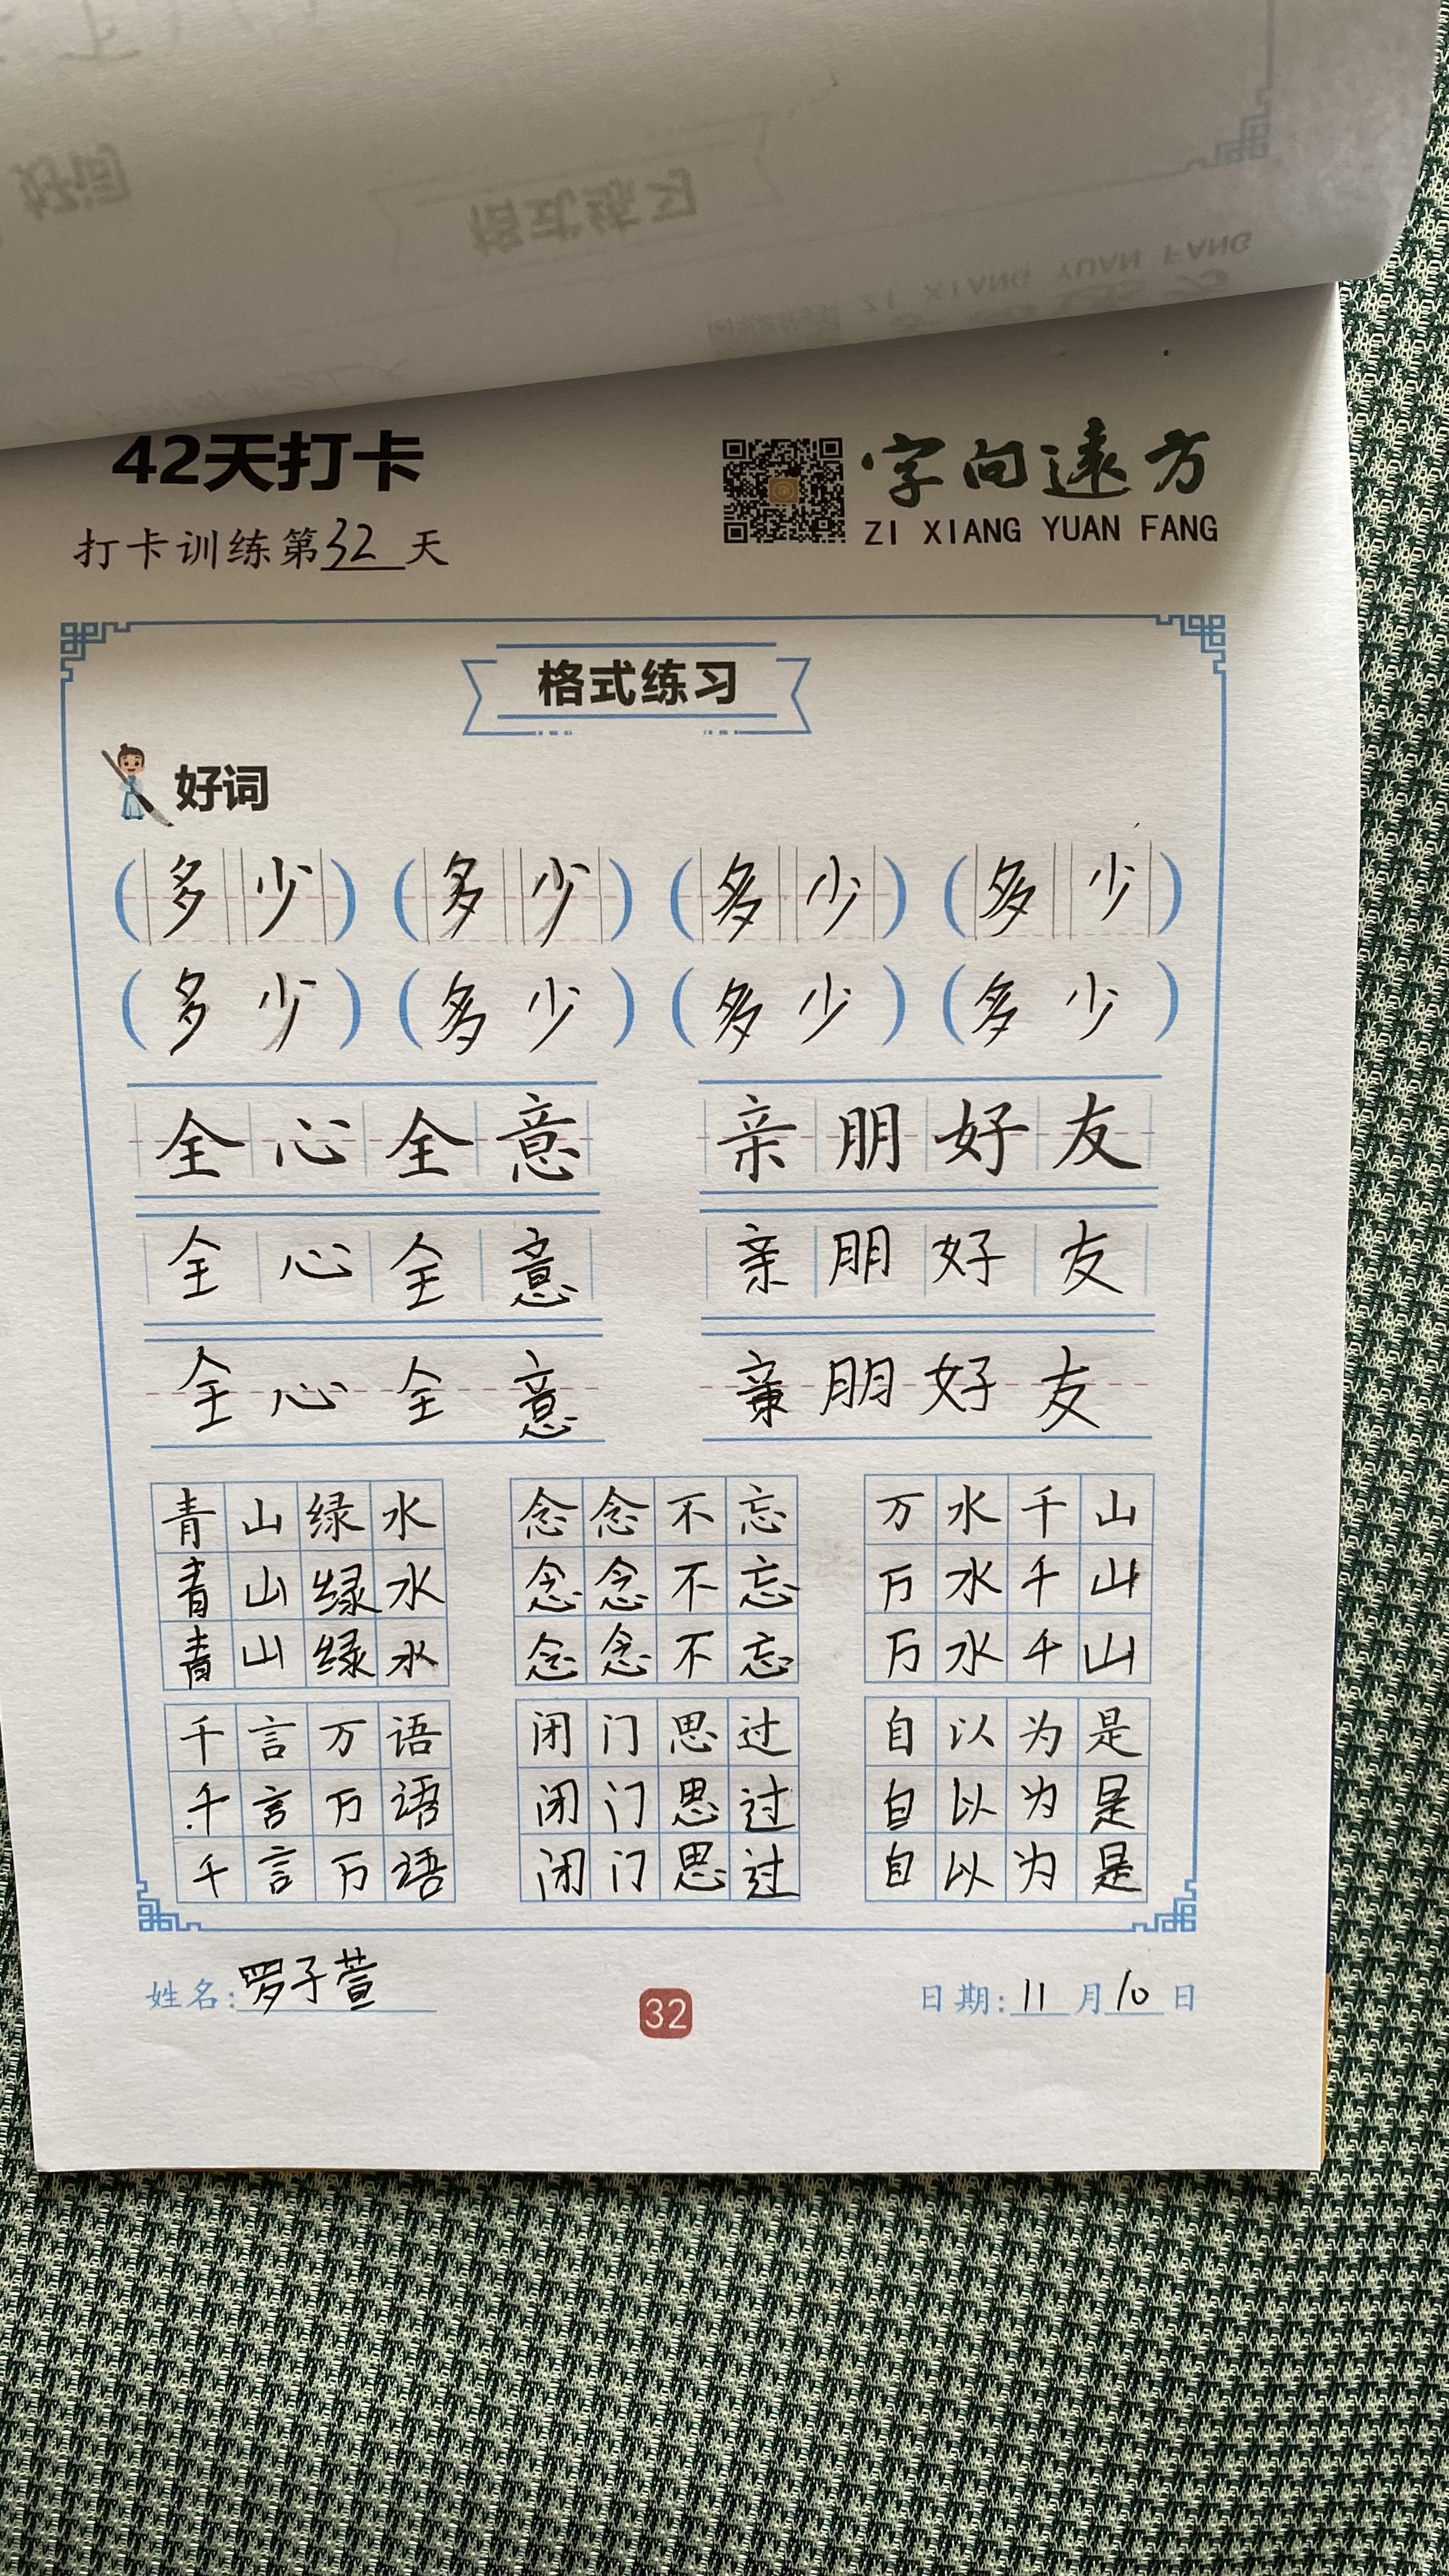 42天打卡
字向远方
打卡训练第32天
ZI XIANG YUAN FANG
格式练习
好词
(多少) (多少) (多少) (多少)
(多少) (多少) (多少) (多少)
全心全意 亲朋好友
全心全意 亲朋好友
全心全意 亲朋好友
青山绿水 念念不忘 万水千山
青山绿水 念念不忘 万水千山
青山绿水 念念不忘 万水千山
千言万语 闭门思过 自以为是
千言万语 闭门思过 自以为是
千言万语 闭门思过 自以为是
姓名:罗子萱 32 日期:11月10日